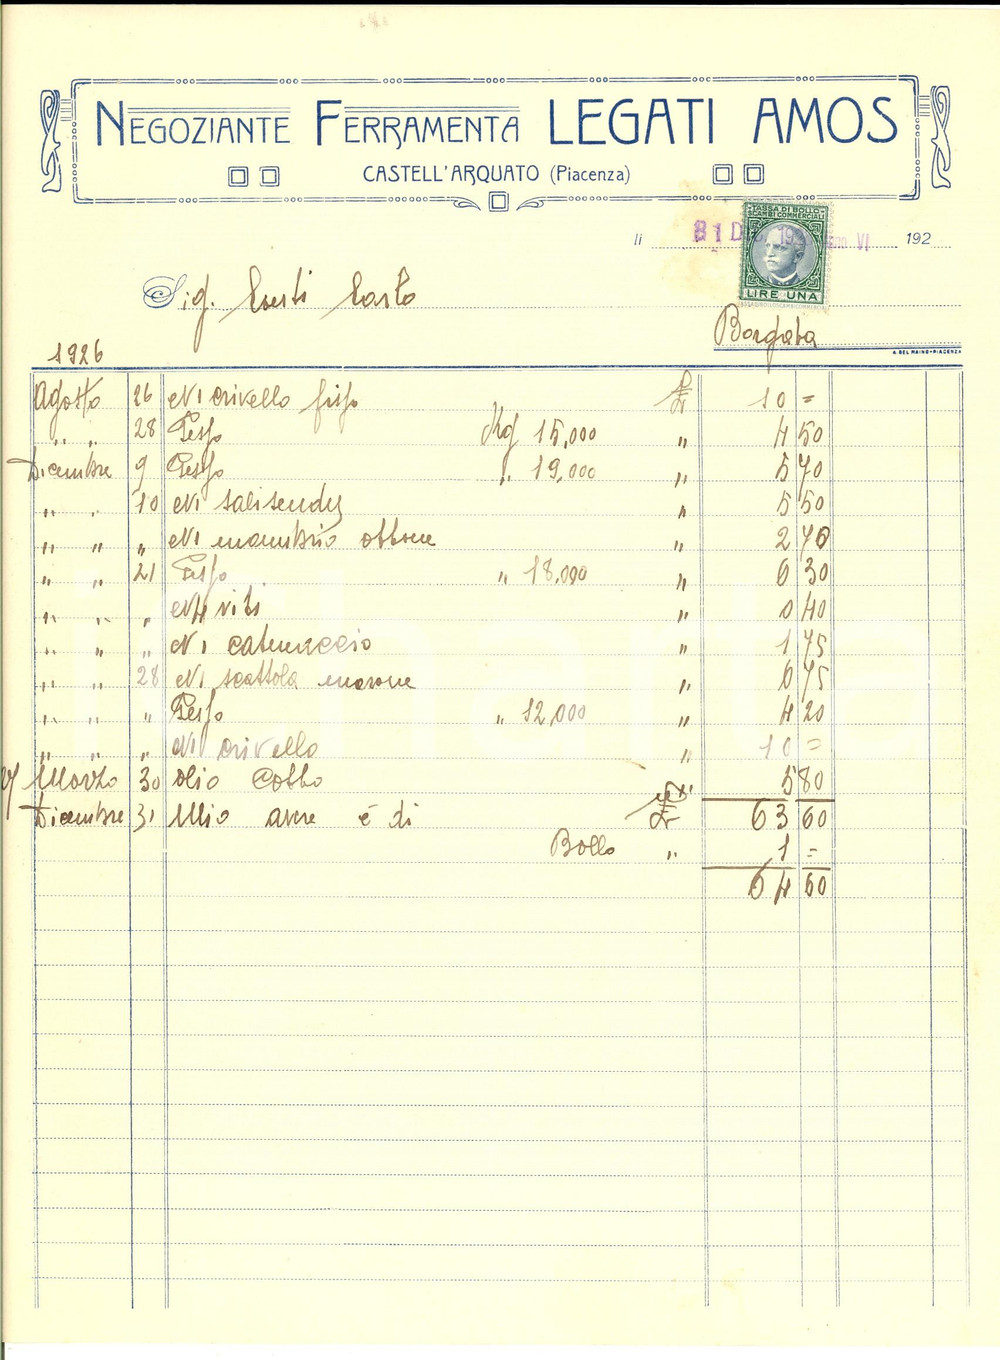 NEGOZIANTE FERRAMENTA LEGATI AMOS
CASTELL'ARQUATO (Piacenza)
TASSA DI BOLLO
SCAMBI COMMERCIALI
LIRE UNA
li 31 D 192
Sig. Conti Carlo
Borgata
A. DEL MAINO-PIACENZA
1926
Agosto 26 N 1 crivello 10 =
" " 28 Kg 15,000 " 4 50
Dicembre 9 " 19,000 " 5 70
" " 10 N 1 saliscendi " 5 50
" " " N 1 ottone " 2 70
" " 21 " 18,000 " 6 30
" " " N 4 viti " 0 40
" " " N 1 catenaccio " 1 75
" " 28 N 1 scattola " 6 75
" " " " 12,000 " 4 20
" " " N 1 crivello " 10 =
27 Marzo 30 olio cotto " 5 80
Dicembre 31 Mio avere é di 63 60
Bollo " 1 =
64 60